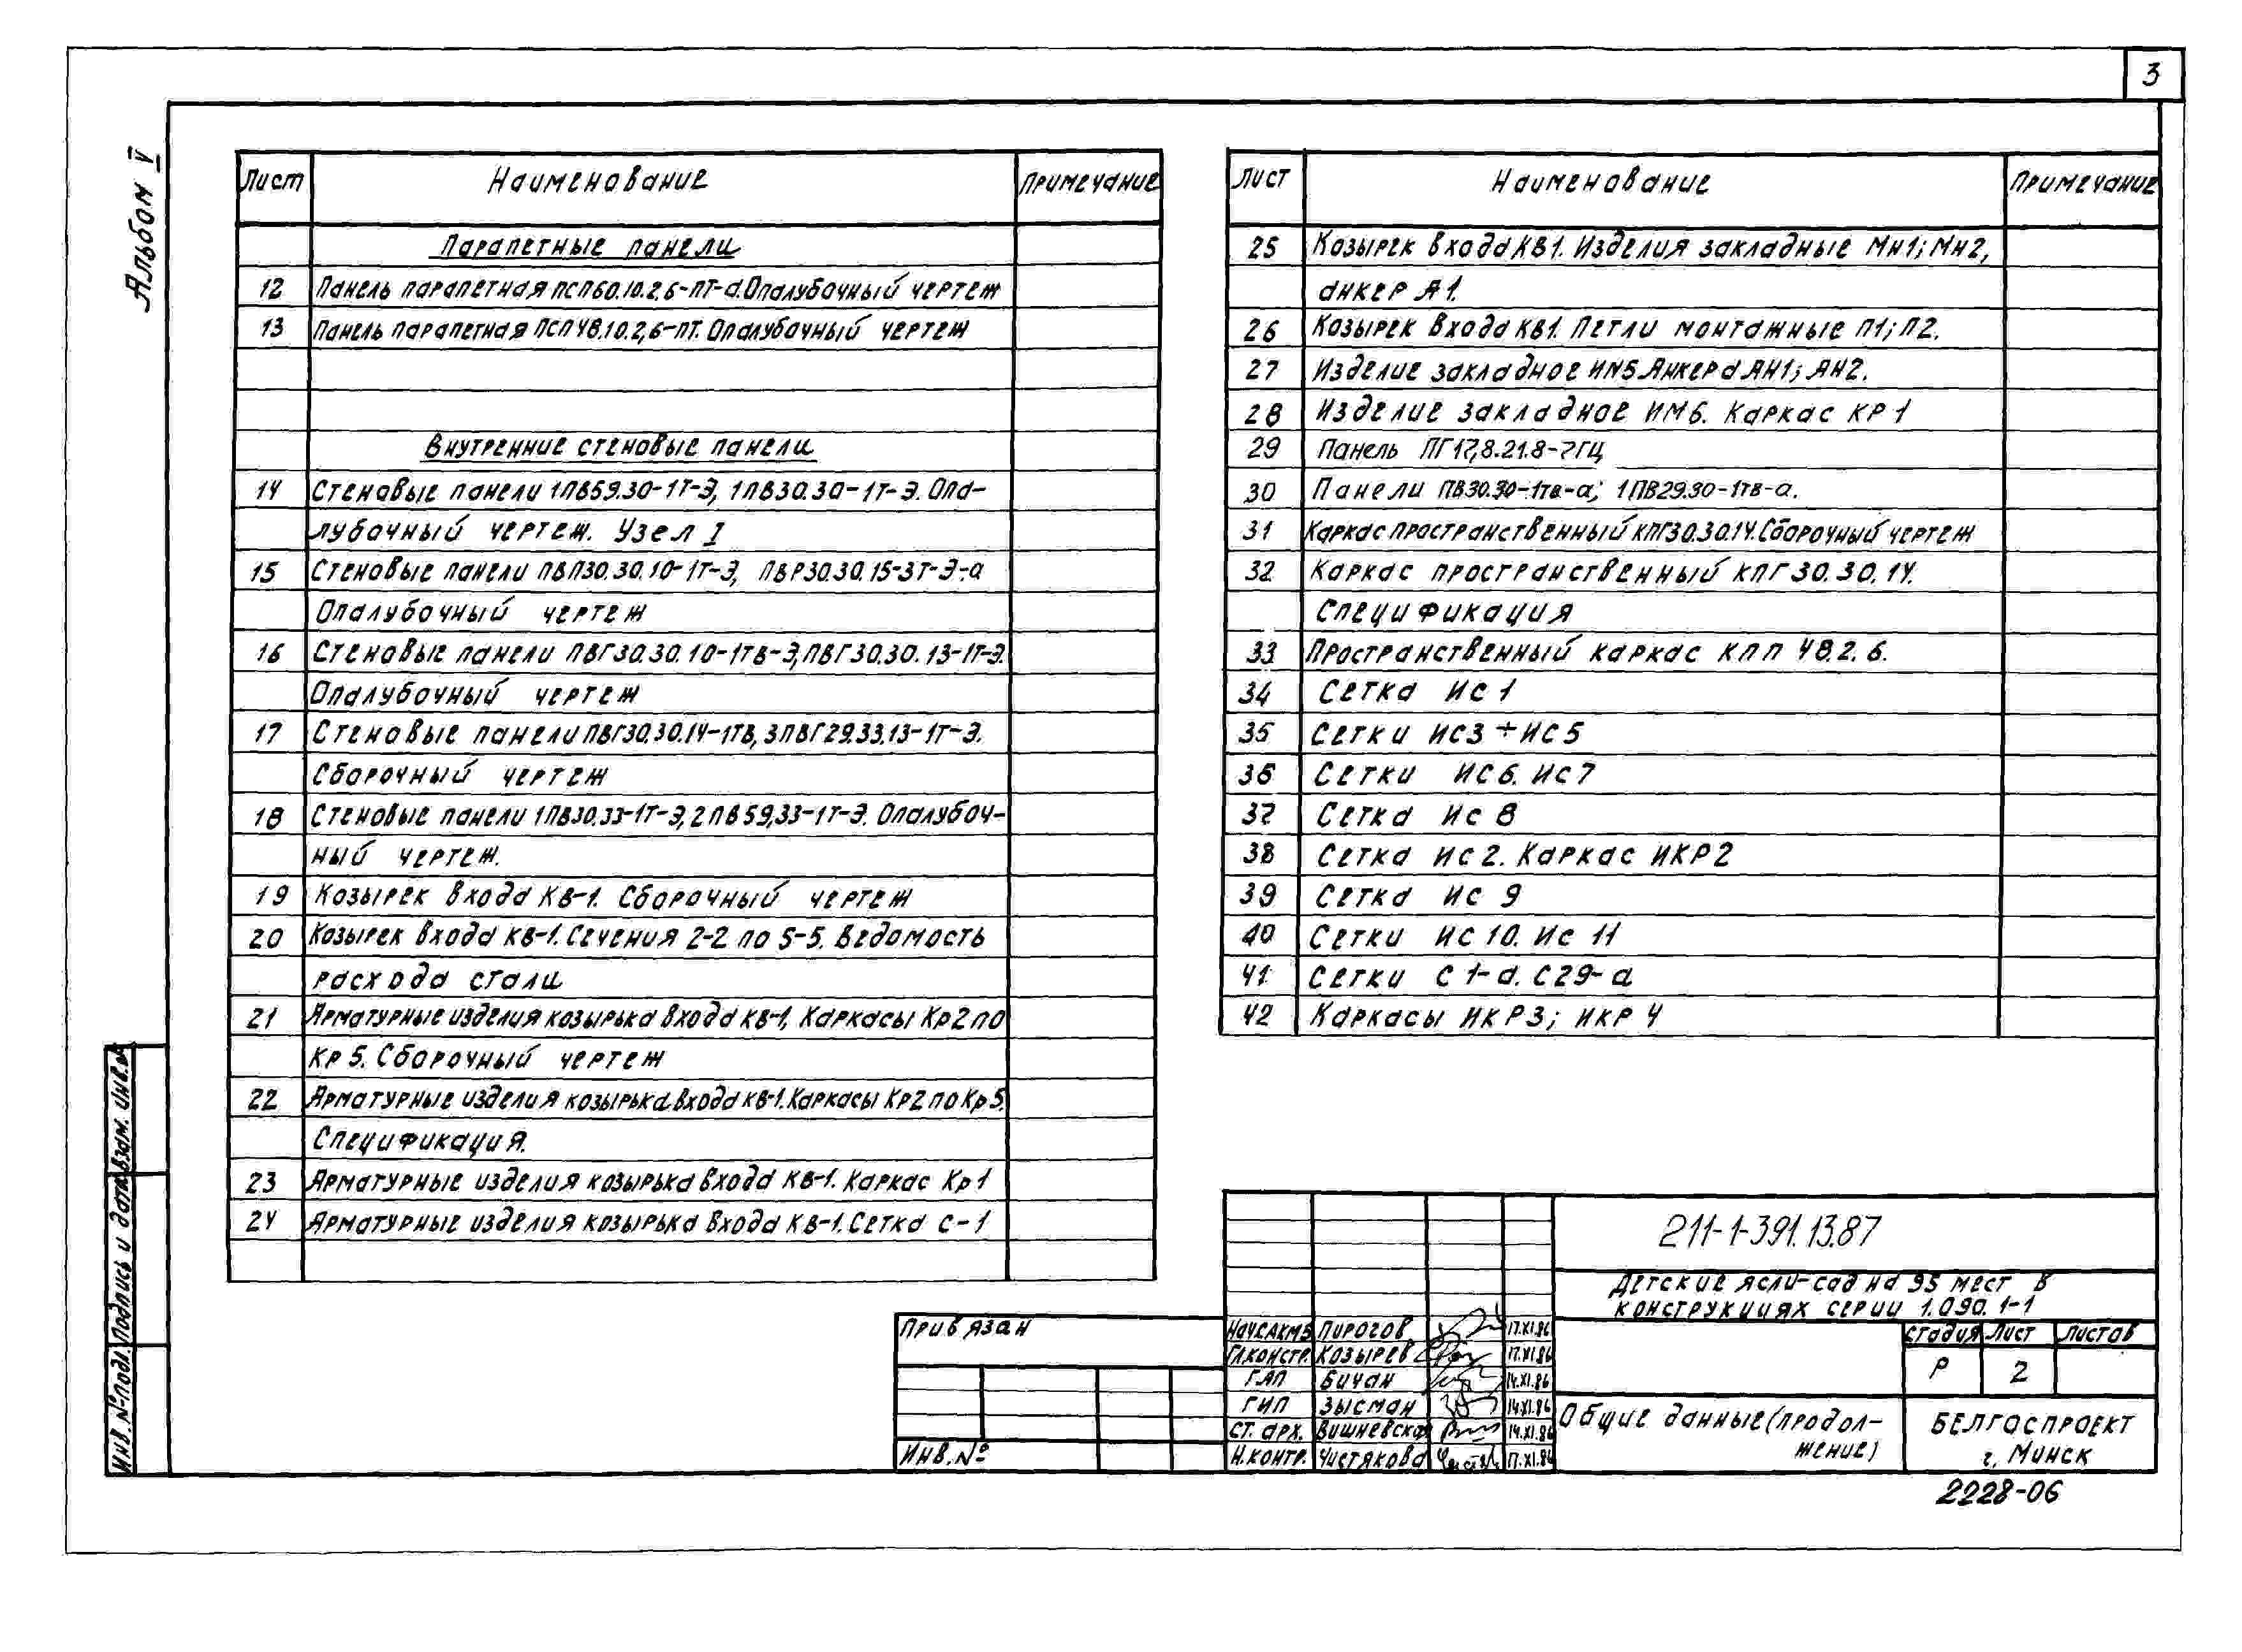 3
Альбом V
Лист Наименование Примечание
Парапетные панели
12 Панель парапетная ПСП60.10.2,6-ПТ-а. Опалубочный чертеж
13 Панель парапетная ПСП48.10.2,6-ПТ. Опалубочный чертеж
Внутренние стеновые панели
14 Стеновые панели 1ПВ59.30-1Т-Э, 1ПВ30.30-1Т-Э. Опа-
лубочный чертеж. Узел I
15 Стеновые панели ПВП30.30.10-1Т-Э, ПВР30.30.15-3Т-Э-а
Опалубочный чертеж
16 Стеновые панели ПВГ30.30.10-1ТВ-Э, ПВГ30.30.13-1Т-Э.
Опалубочный чертеж
17 Стеновые панели ПВГ30.30.14-1ТВ, 3ПВГ29.33.13-1Т-Э.
Сборочный чертеж
18 Стеновые панели 1ПВ30.33-1Т-Э, 2ПВ59,33-1Т-Э. Опалубоч-
ный чертеж.
19 Козырек входа КВ-1. Сборочный чертеж
20 Козырек входа КВ-1. Сечения 2-2 по 5-5. Ведомость
расхода стали
21 Арматурные изделия козырька входа КВ-1, Каркасы Кр2 по
Кр 5. Сборочный чертеж
22 Арматурные изделия козырька входа КВ-1. Каркасы Кр2 по Кр5.
Спецификация.
23 Арматурные изделия козырька входа КВ-1. Каркас Кр1
24 Арматурные изделия козырька входа КВ-1. Сетка С-1
Лист Наименование Примечание
25 Козырек входа КВ1. Изделия закладные Мн1; Мн2,
анкер А1.
26 Козырек входа КВ1. Петли монтажные П1; П2.
27 Изделие закладное ИМ5. Анкера АН1; АН2.
28 Изделие закладное ИМ6. Каркас КР1
29 Панель ПГ17,8.21.8-7ГЦ
30 Панели ПВ30.30-1тв-а; 1ПВ29.30-1тв-а.
31 Каркас пространственный КПГ30.30.14. Сборочный чертеж
32 Каркас пространственный КПГ 30.30.14.
Спецификация
33 Пространственный каркас КПП 48.2.6.
34 Сетка ИС 1
35 Сетки ИС3 ÷ ИС5
36 Сетки ИС6. ИС7
37 Сетка ИС 8
38 Сетка ИС2. Каркас ИКР2
39 Сетка ИС 9
40 Сетки ИС 10. ИС 11
41 Сетки С1-а. С29-а
42 Каркасы ИКР3; ИКР 4
Взам. инв. №
Подпись и дата
Инв. № подл.
Привязан
Инв. №
Нач.САКМ5 Пирогов 17.XI.86
Гл.констр. Козырев 17.XI.86
ГАП Бичан 14.XI.86
ГИП Зысман 14.XI.86
Ст. арх. Вишневская 14.XI.86
Н.контр. Чистякова 17.XI.86
211-1-391.13.87
Детские ясли-сад на 95 мест в
конструкциях серии 1.090.1-1
Стадия Лист Листов
Р 2
Общие данные (продол-
жение)
БЕЛГОСПРОЕКТ
г. Минск
2228-06